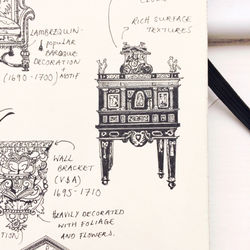 CLOCK
RICH SURFACE
TEXTURES
LAMBREQUIN-
popular
BAROQUE
DECORATION
+ MOTIF
(1690-1700)
WALL
BRACKET
(V&A)
1695-1710
HEAVILY DECORATED
WITH FOLIAGE
AND FLOWERS.